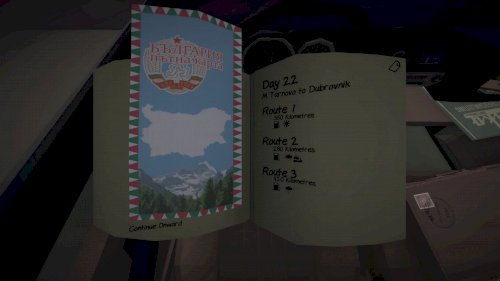 БЪЛГАРИЯ
Пътна карта
Continue Onward
Day 22
M Tarnovo to Dubrovnik
Route 1
Kilometres
Route 2
Kilometres
Route 3
Kilometres